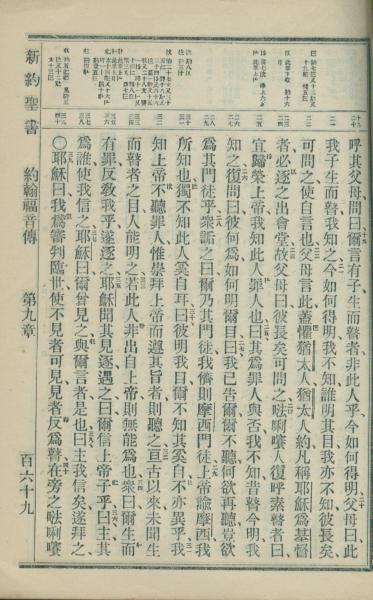 呼其父母問曰爾言有子生而瞽者非此人乎今如何得明父母曰此
我子生而瞽我知之今如何得明我不知誰明其目我亦不知彼長矣
可問之使自言也父母言此蓋懼猶太人猶太人約凡稱耶穌爲基督
者必逐之出會堂故父母曰彼長矣可問之𠵽唎㘔人復呼素瞽者曰
宜歸榮上帝我知此人罪人也曰其爲罪人與否我不知昔瞽今明我
知之復問曰彼何爲如何明爾目曰我已告爾爾不聽何欲再聽豈欲
爲其門徒乎衆詬之曰爾乃其門徒我儕則摩西門徒上帝諭摩西我
所知也獨不知此人奚自耳曰彼明我目爾不知其奚自不亦異乎我
知上帝不聽罪人惟崇拜上帝而遵其旨者則聽之亘古以來未聞生
而瞽者之目人能明之若此人非出自上帝則無能爲也衆曰爾生而
有罪反教我乎遂逐之耶穌聞其見逐遇之曰爾信上帝子乎曰主其
爲誰使我信之耶穌曰爾曾見之與爾言者是也曰主我信矣遂拜之
〇耶穌曰我爲審判臨世使不見者可見見者反爲瞽在旁之𠵽唎㘔
新約聖書 約翰福音傳 第九章 百六十九